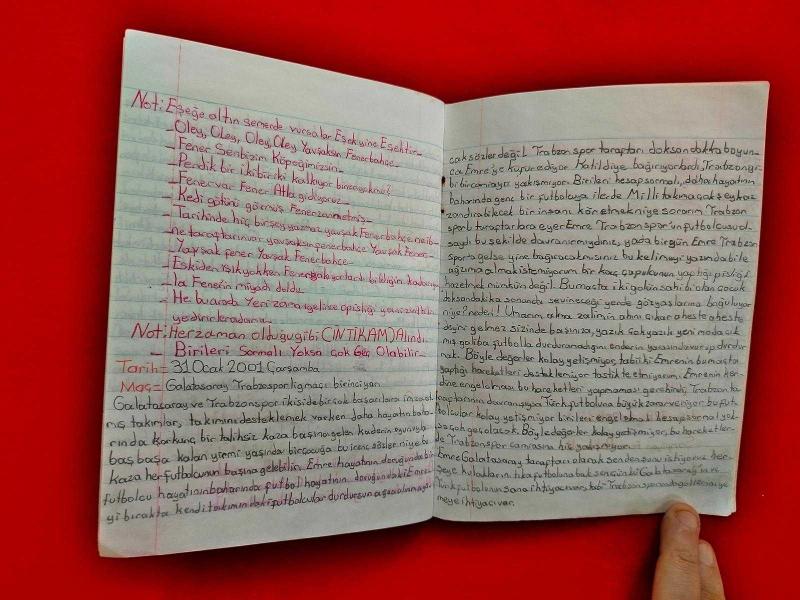 Not: Eşeğe altın semerde vursalar Eşek yine Eşektir-
-Oley, Oley, Oley, Oley Yavşaksın Fenerbahçe-
-Fener Senbizim Köpeğimizsin-
-Perdik bir iki biri ki kalkıyor
-Fener var Fener Atla gidiyoruz-
-Kedi götünü görmüş Fener zannetmiş-
-Tarihinde hiç birşey yazmaz yavşak Fenerbahçe ne ib-
ne taraftarınvar yavşaksın fenerbahçe Yavşak Fener-
-Yavşak fener Yavşak Fenerbahçe-
-Eskiden ışık yokken Fener
-la Fenerin miyadı doldu-
-He buarada Yeri zamanı gelince
yedirirler adama-
Not: Herzaman olduğu gibi (İNTİKAM) Alındı
- Birileri Sormalı Yoksa çok Geç Olabilir-
Tarih= 31 Ocak 2001 Çarşamba
Maç= Galatasaray Trabzonspor lig maçı birinci yarı
Galatasaray ve Trabzonspor ikiside bir çok başarılara imza at-
mış takımlar, takımını desteklemek varken daha hayatın baha-
rında korkunç bir talihsiz kaza başına gelen kaderin oyunuyla
baş başa kalan yirmi yaşında bir çocuğa bu iğrenç sözler niye bu
kaza her futbolcunun başına gelebilir. Emre hayatının doruğunda bir
futbolcu hayatının baharında futbol hayatının doruğundaki Emre
yi bırakta kendi takımındaki futbolcular dursun ağza alınmaya
cak sözler değil Trabzonspor taraftarı doksan dakka boyun-
ca Emre'ye küfür ediyor Katil diye bağırıyorlardı, Trabzon gi-
bi bir camiaya yakışmıyor. Birileri hesap sormalı, daha hayatının
baharında genç bir futbolcuya ilerde Milli takıma çok şey ka-
zandırabilecek bir insanı kör etmek niye sorarım Trabzon
sporlu taraftarlara eğer Emre Trabzonspor'un futbolcusu ol-
saydı bu şekilde davranırmıydınız, yada birgün Emre Trabzon
spora gelse yine bağıracakmısınız bu kelimeyi yazında bile
ağzıma almak istemiyorum bir kaç çapulcunun yaptığı pisliği
hazmetmek mümkün değil. Bu maçta iki golün sahibi olan çocuk
doksan dakika sonunda sevineceği yerde gözyaşlarına boğuluyor
niye? neden!! Unutma alma zalimin ahını çıkar aheste aheste
deyip gelmez sizinde başınıza, yazık çok yazık yeni moda çık
mış galiba futbolla durduramadığını
mak. Böyle değerler kolay yetişmiyor, tabiiki Emrenin bu maçta
yaptığı hareketleri desteklemiyor tastik etmiyorum. Emrenin ken-
dine engel olması bu hareketleri yapmaması gerekirdi, Trabzon ta
raftarının davranışıysa Türk futboluna büyük zarar veriyor, bu fut-
bolcular kolay yetişmiyor birileri engel olmalı hesap sormalı yok-
sa çok geç olacak. Böyle değerler kolay yetişmiyor, bu hareketler-
de Trabzonspor camiasına hiç yakışmıyor
Emre Galatasaray taraftarı olarak senden şunu istiyoruz her-
şeye kulaklarını tıka futboluna bak sen çünkü Galatasaray'ın ve
Türk futbolunun sana ihtiyacı var, tabi Trabzonsporunda
meye ihtiyacı var.